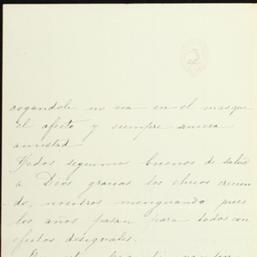 rogandole no vea en el mas que
el afecto y siempre sincera
amistad.
Todos seguimos buenos de salud
a Dios gracias los chicos crecien
do, nosotros menguando pues
los años pasan para todos con
efectos desiguales.